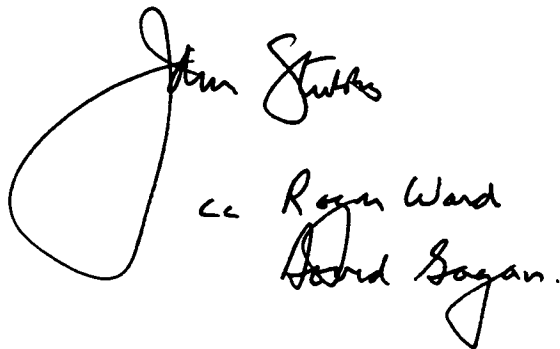 John Stubbs
cc Roger Ward
David Gagan.